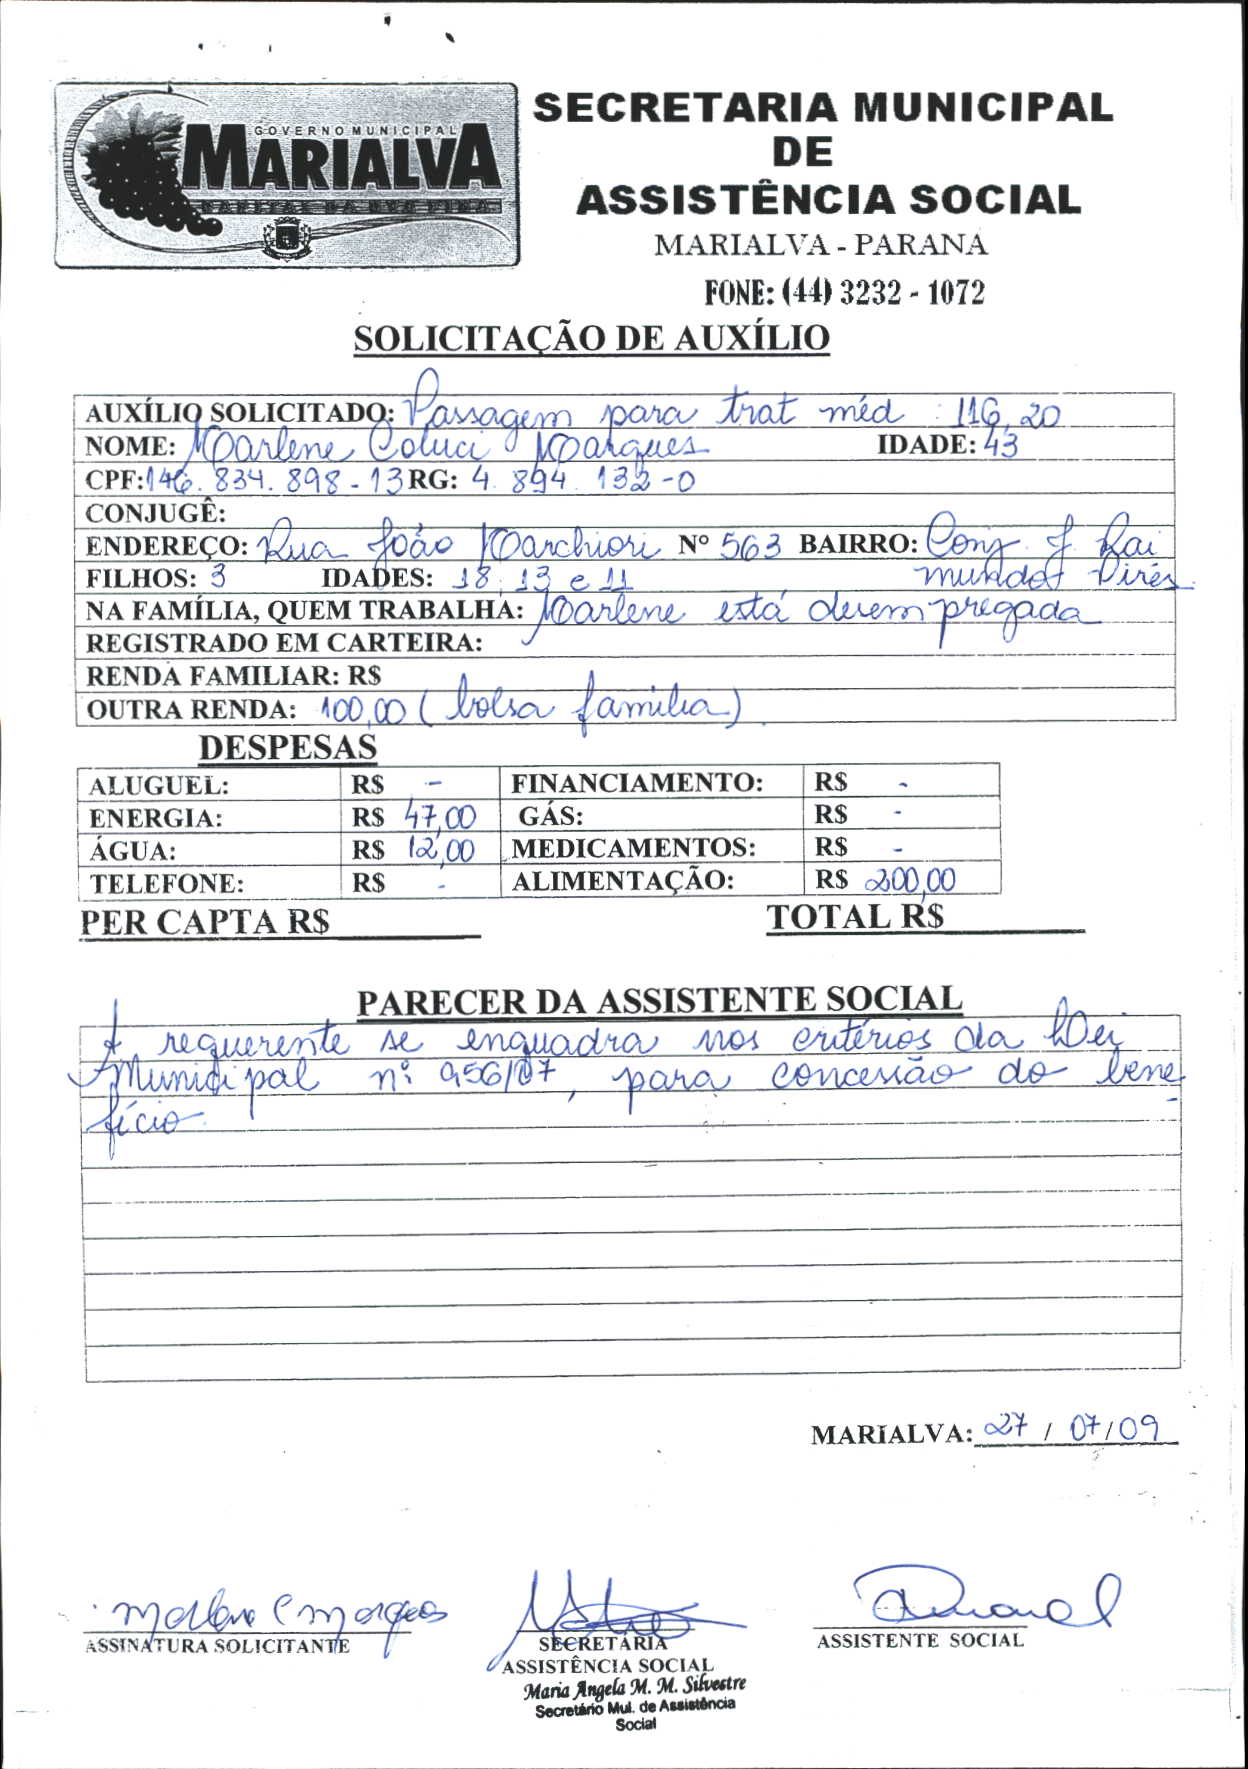 GOVERNO MUNICIPAL
MARIALVA
CAPITAL DA UVA FINA
SECRETARIA MUNICIPAL
DE
ASSISTÊNCIA SOCIAL
MARIALVA - PARANA
FONE: (44) 3232 - 1072
SOLICITAÇÃO DE AUXÍLIO
AUXÍLIO SOLICITADO: Passagem para trat méd : 116,20
NOME: Marlene Coluci Marques IDADE: 43
CPF: 146.834.898-13 RG: 4.894.132-0
CONJUGÊ:
ENDEREÇO: Rua João Marchiori Nº 563 BAIRRO: Conj. J. Rai
FILHOS: 3 IDADES: 18, 13 e 11 mundo Pires
NA FAMÍLIA, QUEM TRABALHA: Marlene está desempregada
REGISTRADO EM CARTEIRA:
RENDA FAMILIAR: R$
OUTRA RENDA: 100,00 (bolsa família)
DESPESAS
ALUGUEL: R$ - FINANCIAMENTO: R$ -
ENERGIA: R$ 47,00 GÁS: R$ -
ÁGUA: R$ 12,00 MEDICAMENTOS: R$ -
TELEFONE: R$ - ALIMENTAÇÃO: R$ 200,00
PER CAPTA R$ TOTAL R$
PARECER DA ASSISTENTE SOCIAL
A requerente se enquadra nos critérios da Lei
Municipal nº 956/07, para concessão do bene
fício.
MARIALVA: 27 / 07/09
Marlene C Marques
ASSINATURA SOLICITANTE
SECRETÁRIA
ASSISTÊNCIA SOCIAL
ASSISTENTE SOCIAL
Maria Angela M. M. Silvestre
Secretário Mul. de Assistência
Social